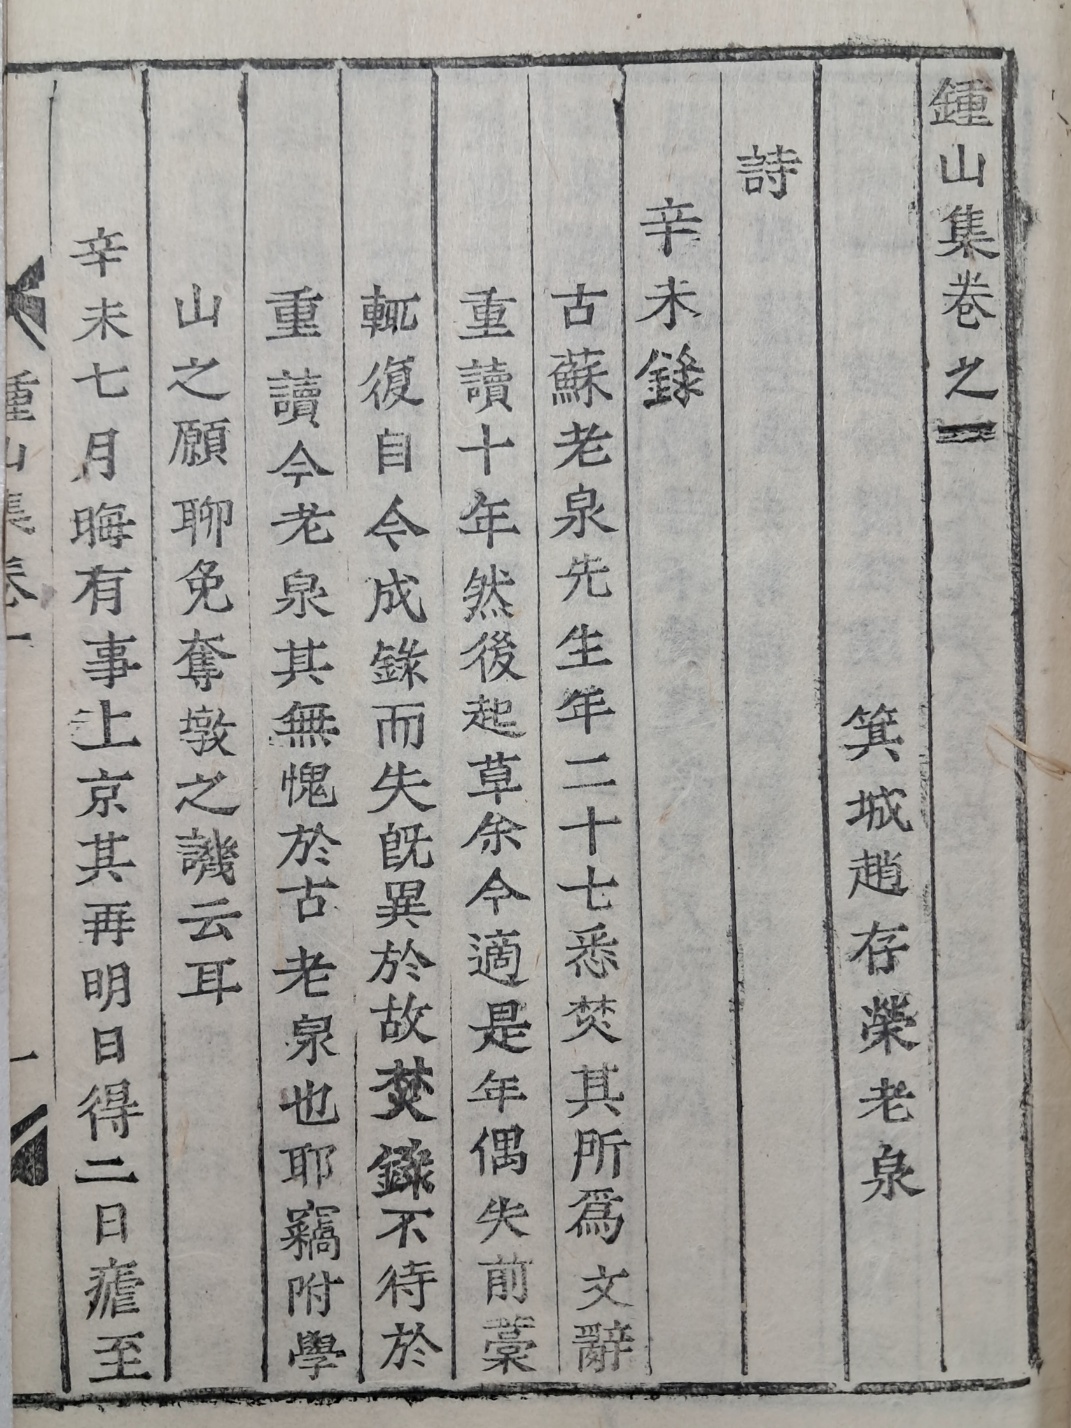 鍾山集卷之一
箕城趙存榮老泉
詩
辛未錄
古蘇老泉先生年二十七悉焚其所爲文辭
重讀十年然後起草余今適是年偶失前藁
輒復自今成錄而失旣異於故焚錄不待於
重讀今老泉其無愧於古老泉也耶竊附學
山之願聊免奪墩之譏云耳
辛未七月晦有事上京其再明日得二日瘧至
鍾山集卷一
一